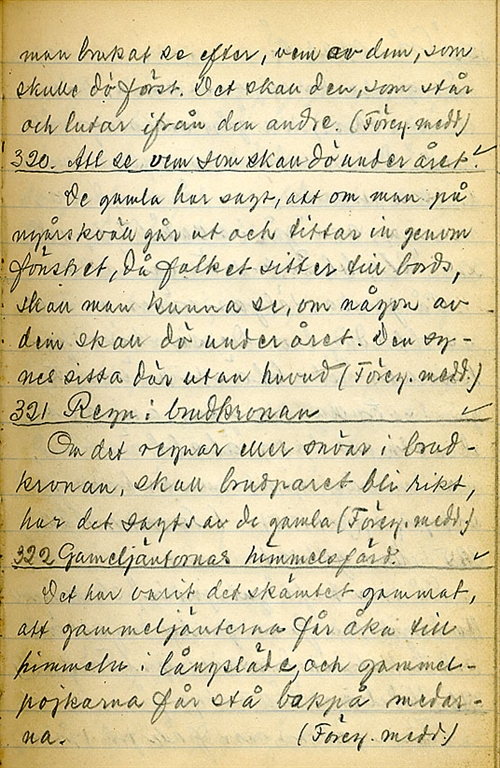 man brukat se efter, vem av dem, som
skulle dö först. Det skall den, som står
och lutar ifrån den andre. (Förey. medd)
320. Att se, vem som skall dö under året.
De gamla har sagt, att om man på
nyårskväll går ut och tittar in genom
fönstret, då folket sitter till bords,
skall man kunna se, om någon av
dem skall dö under året. Den sy-
nes sitta där utan huvud (Förey. medd.)
321 Regn i brudkronan
Om det regnar eller snöar i brud-
kronan, skall brudparet bli rikt,
har det sagts av de gamla (Förey. medd.)
322 Gameljäntornas himmelsfärd.
Det har varit det skämtet gammat,
att gammeljänterna får åka till
himmeln i långsläde, och gammel-
pojkarna får stå bakpå medar-
na. (Förey. medd.)